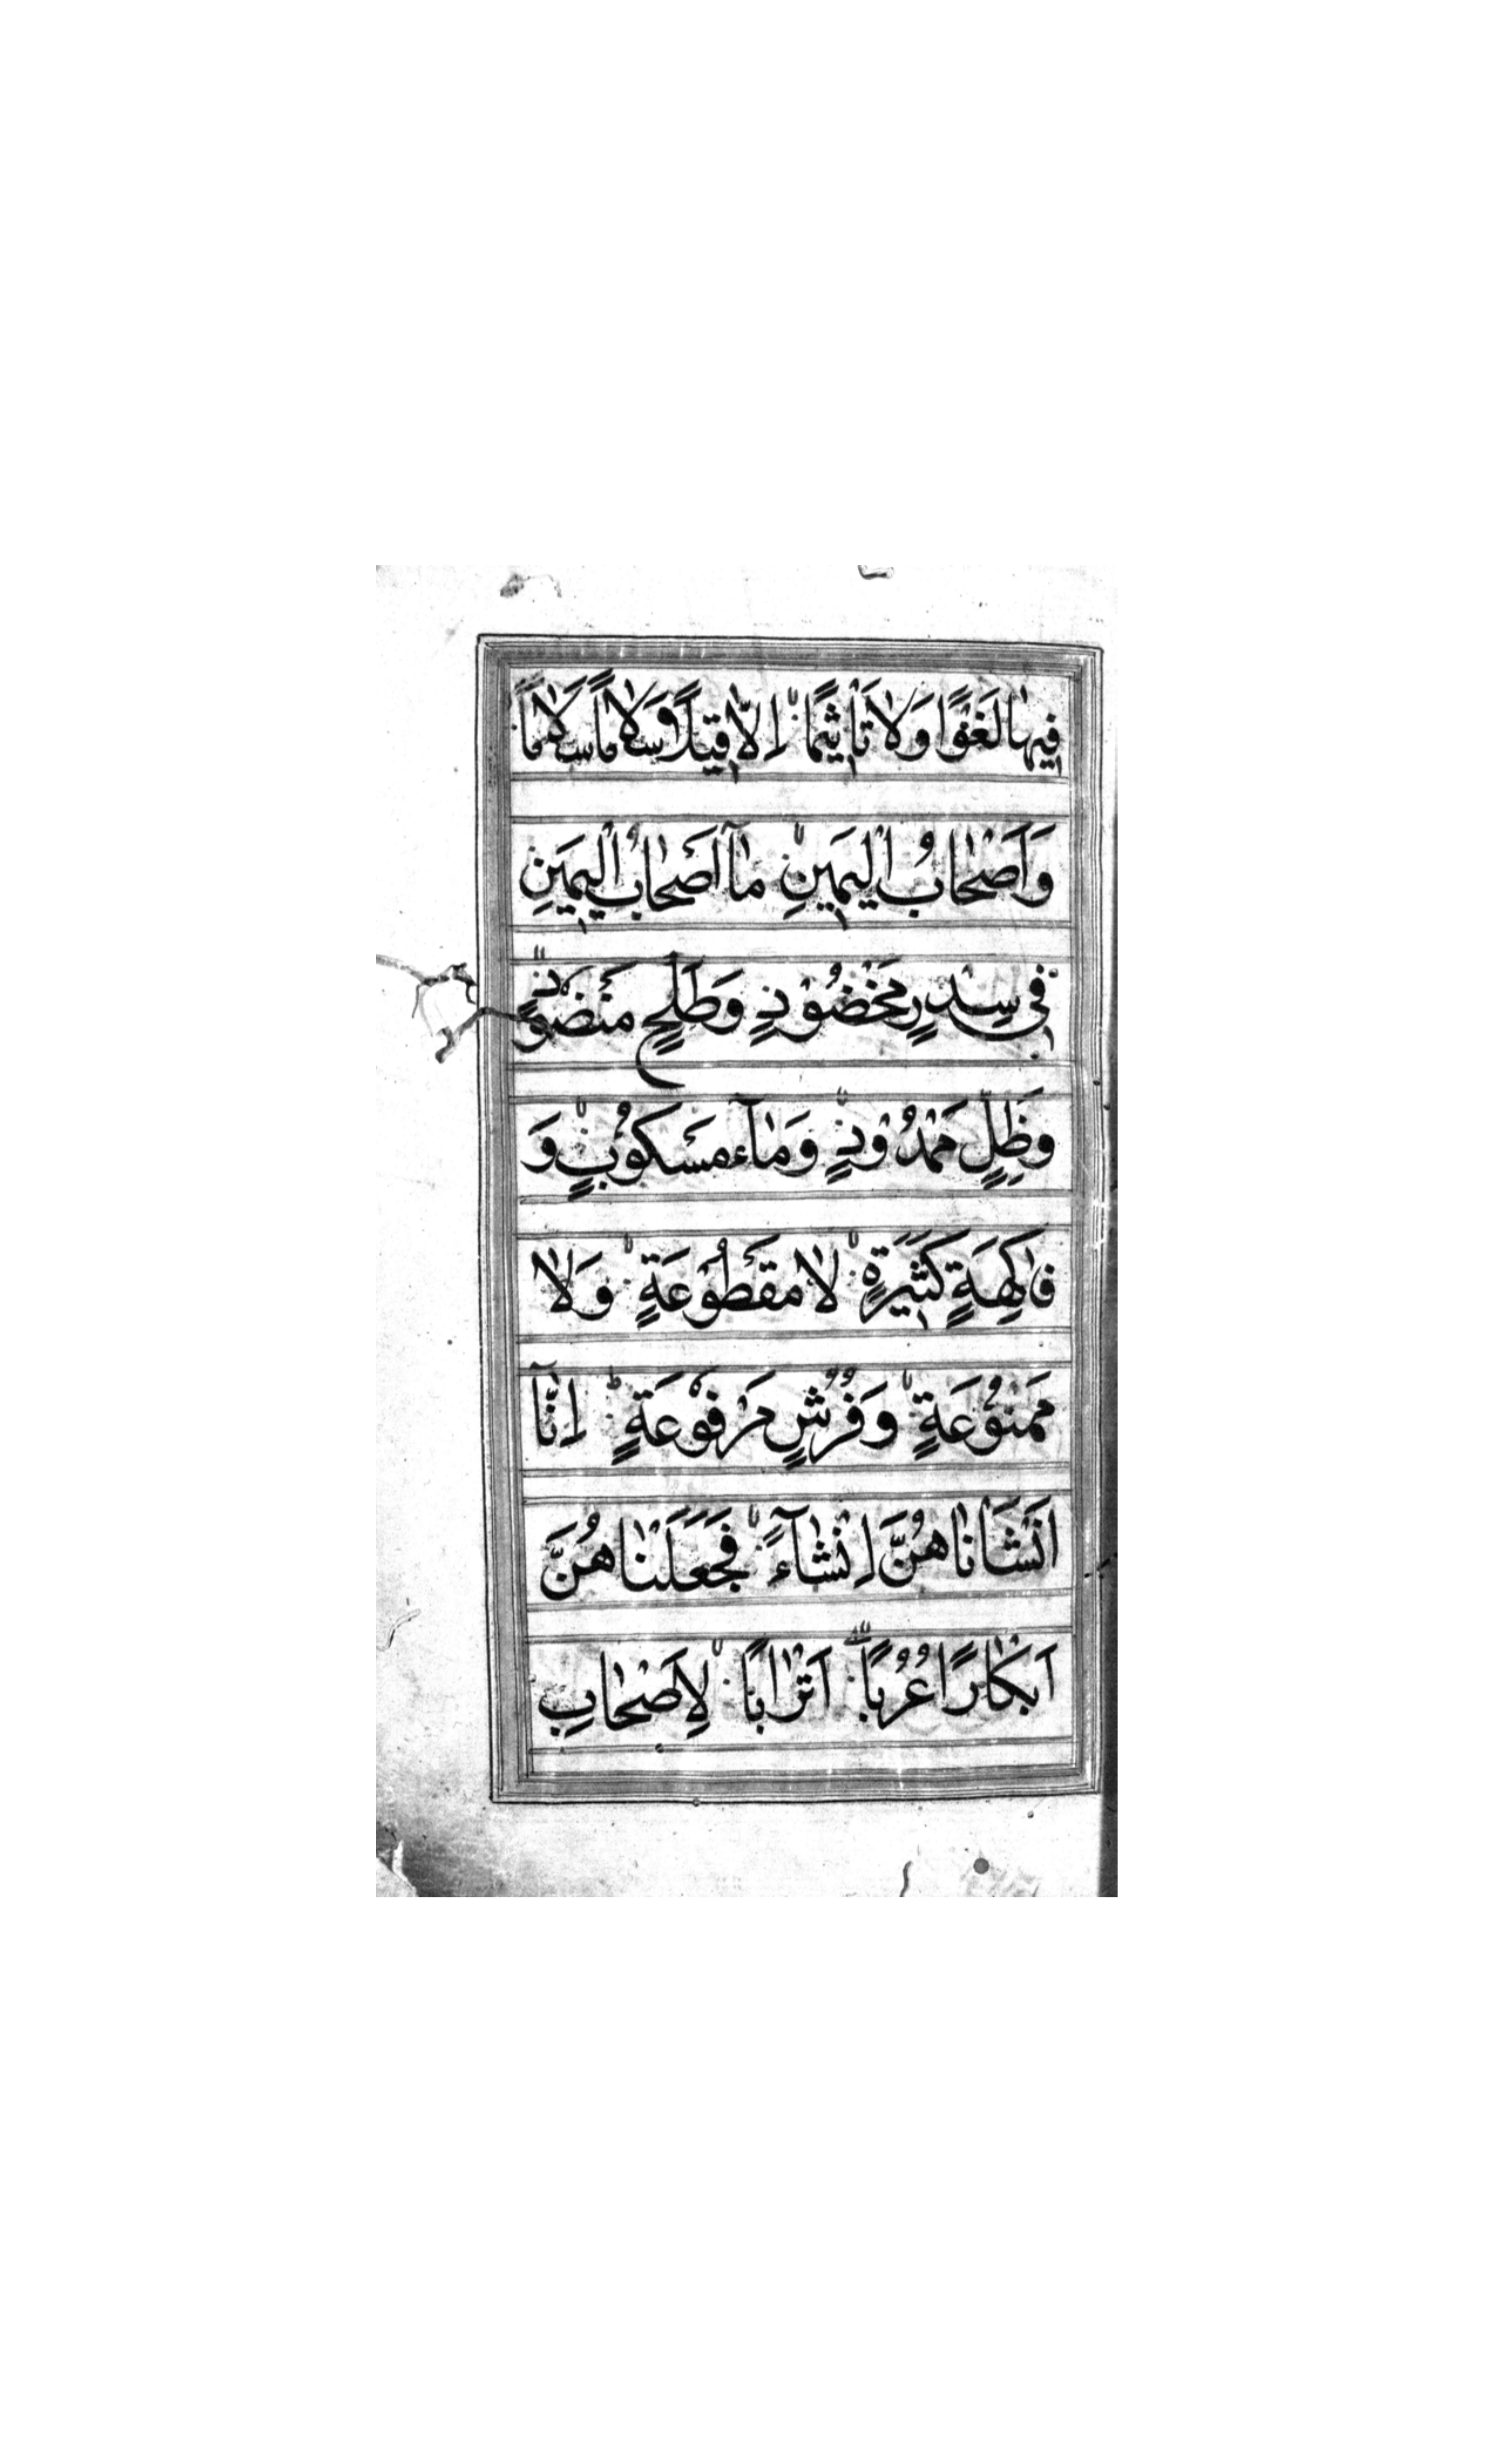 فِيهَا لَغْوًا وَلَا تَأْثِيمًا اِلَّا قِيلًا سَلَامًا سَلَامًا
وَاَصْحَابُ الْيَمِينِ مَآ اَصْحَابُ الْيَمِينِ
فِي سِدْرٍ مَخْضُودٍ وَطَلْحٍ مَنْضُودٍ
وَظِلٍّ مَمْدُودٍ وَمَآءٍ مَسْكُوبٍ وَ
فَاكِهَةٍ كَثِيرَةٍ لَا مَقْطُوعَةٍ وَلَا
مَمْنُوعَةٍ وَفُرُشٍ مَرْفُوعَةٍ اِنَّآ
اَنْشَاْنَاهُنَّ اِنْشَآءً فَجَعَلْنَاهُنَّ
اَبْكَارًا عُرُبًا اَتْرَابًا لِاَصْحَابِ